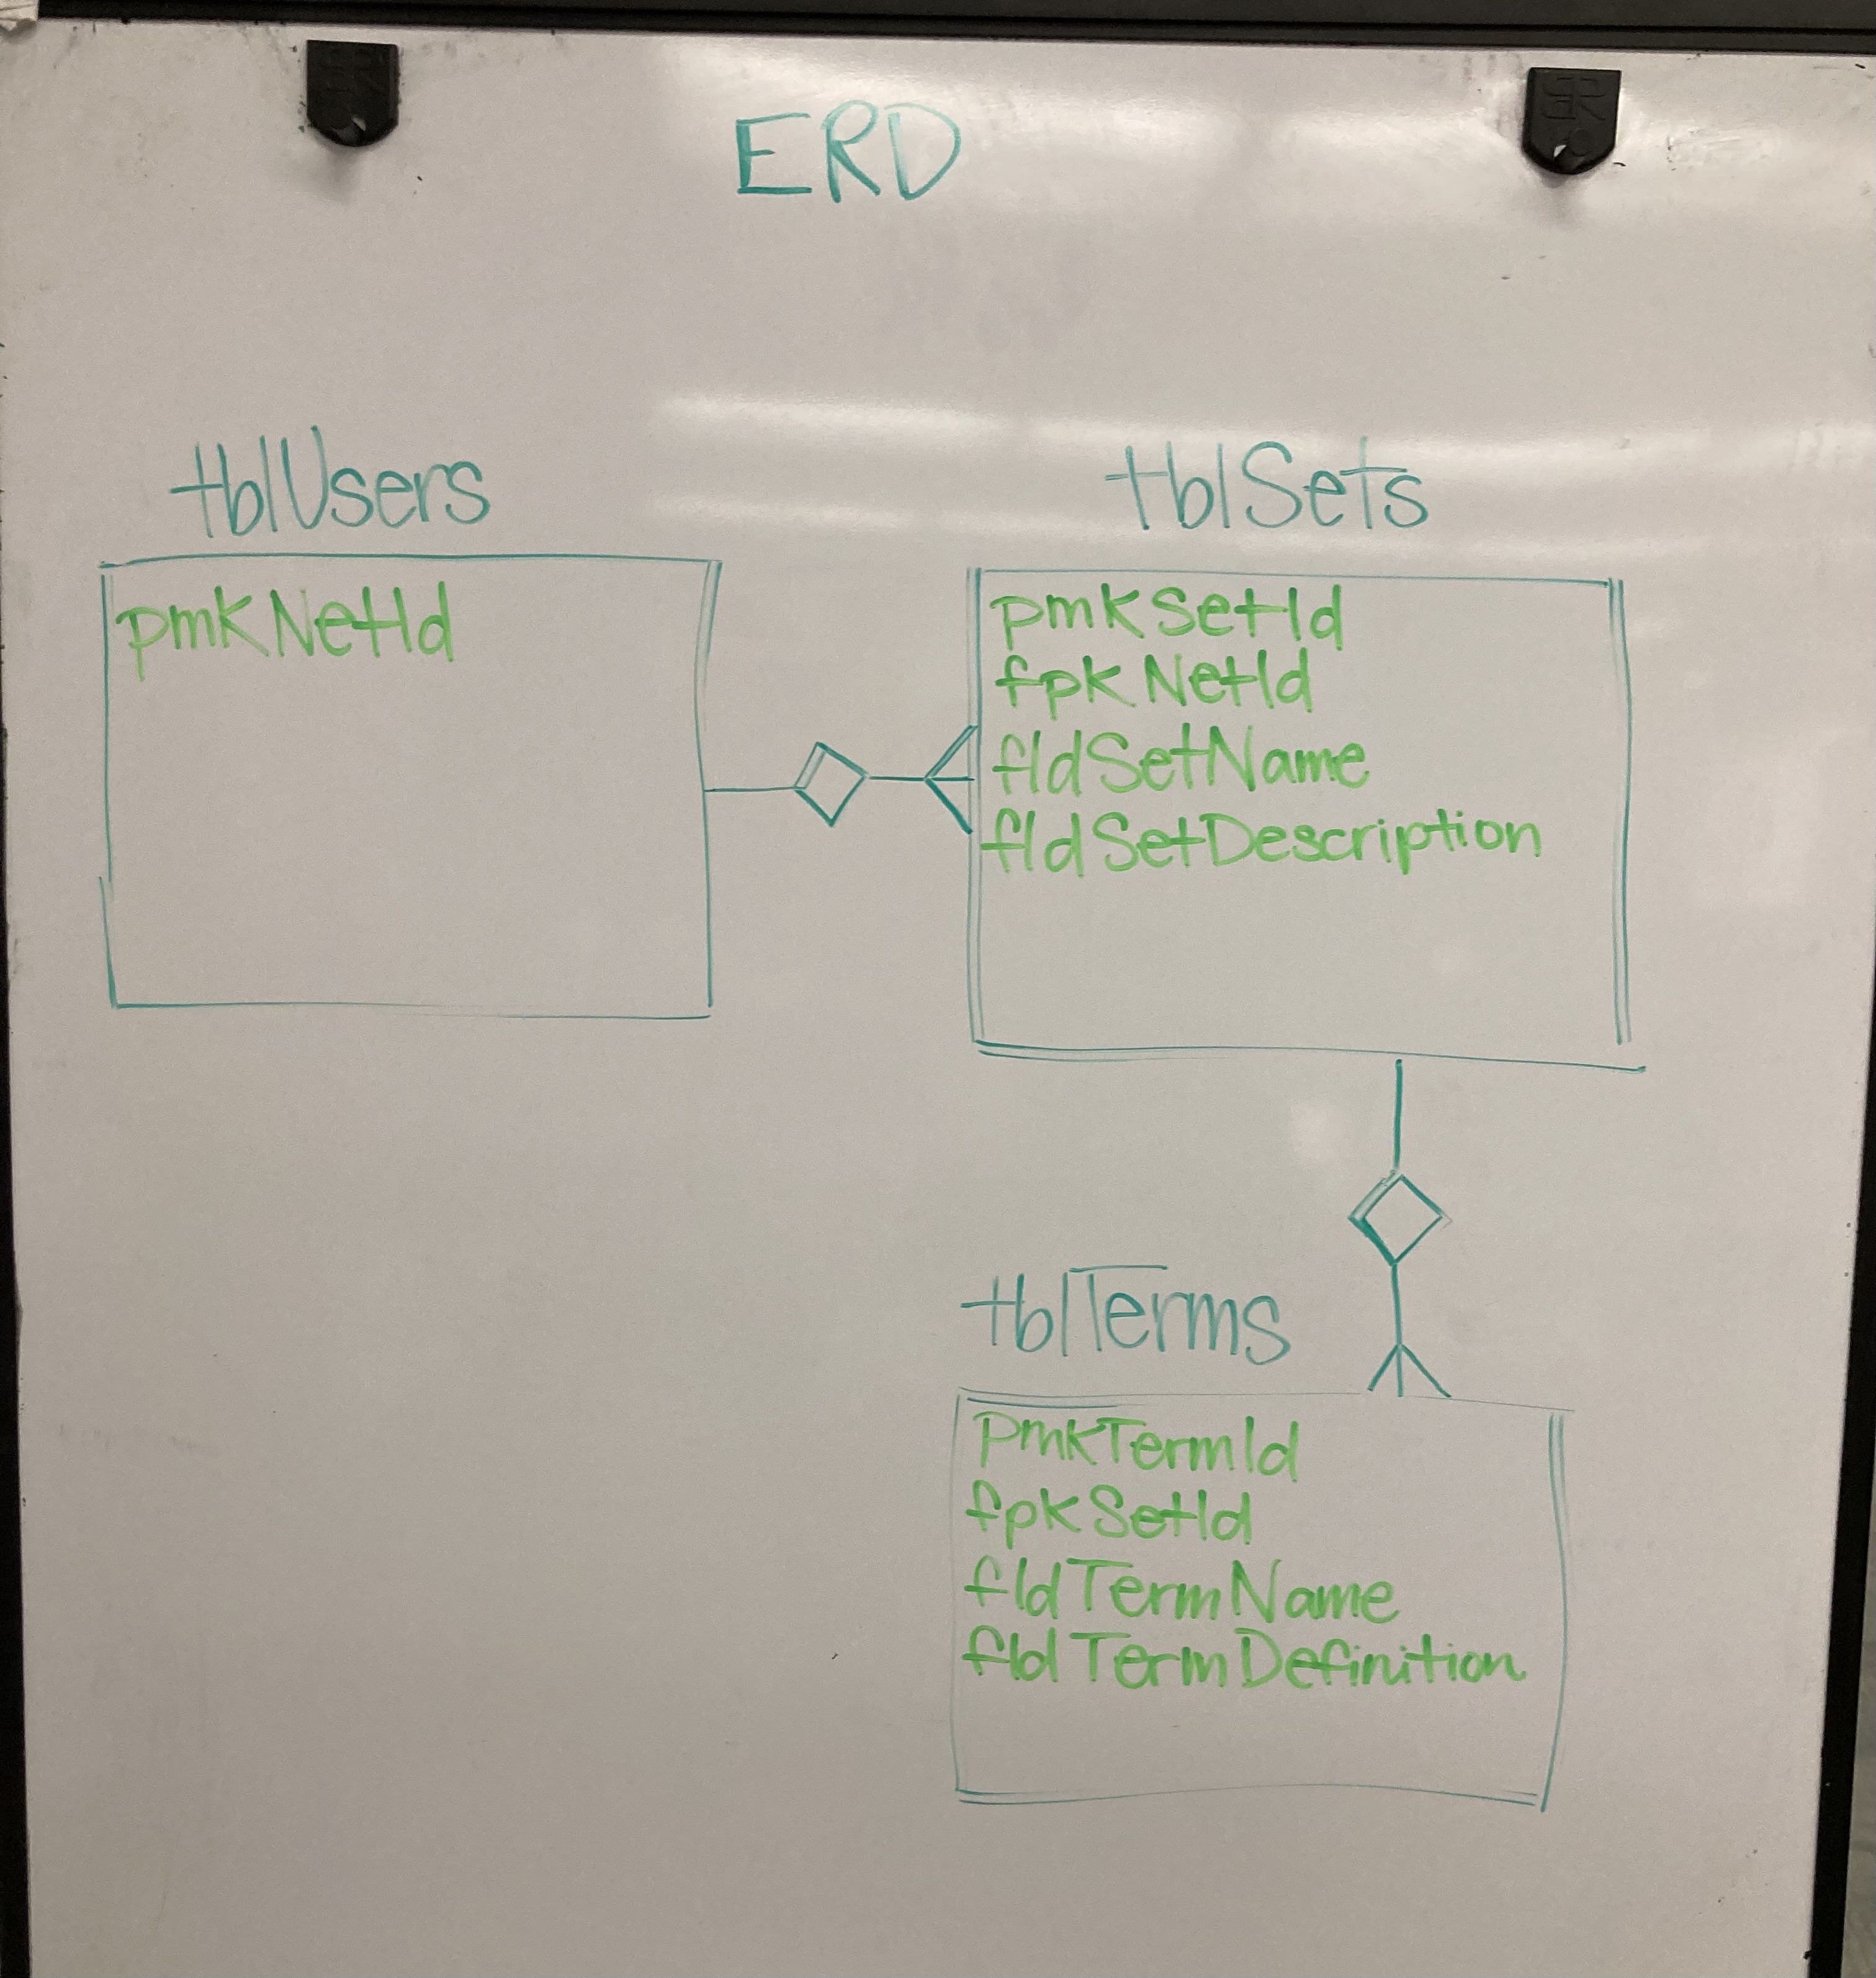 ERD
tblUsers
pmkNetId
tblSets
pmkSetId
fpkNetId
fldSetName
fldSetDescription
tblTerms
pmkTermId
fpkSetId
fldTermName
fldTermDefinition